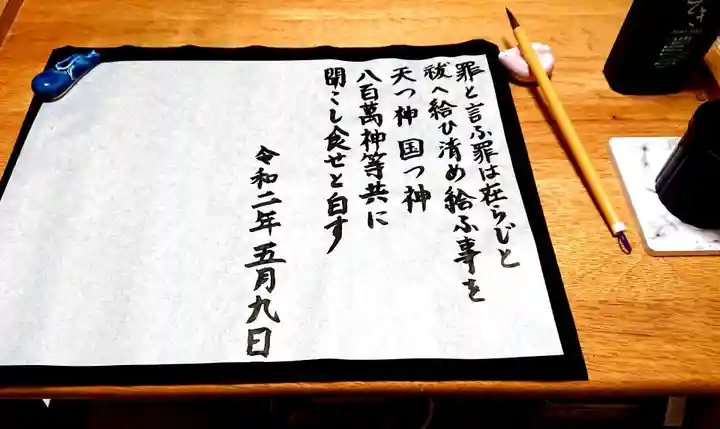 罪と言ふ罪は在らじと
祓へ給ひ清め給ふ事を
天つ神 国つ神
八百萬神等共に
聞こし食せと白す
令和二年 五月九日